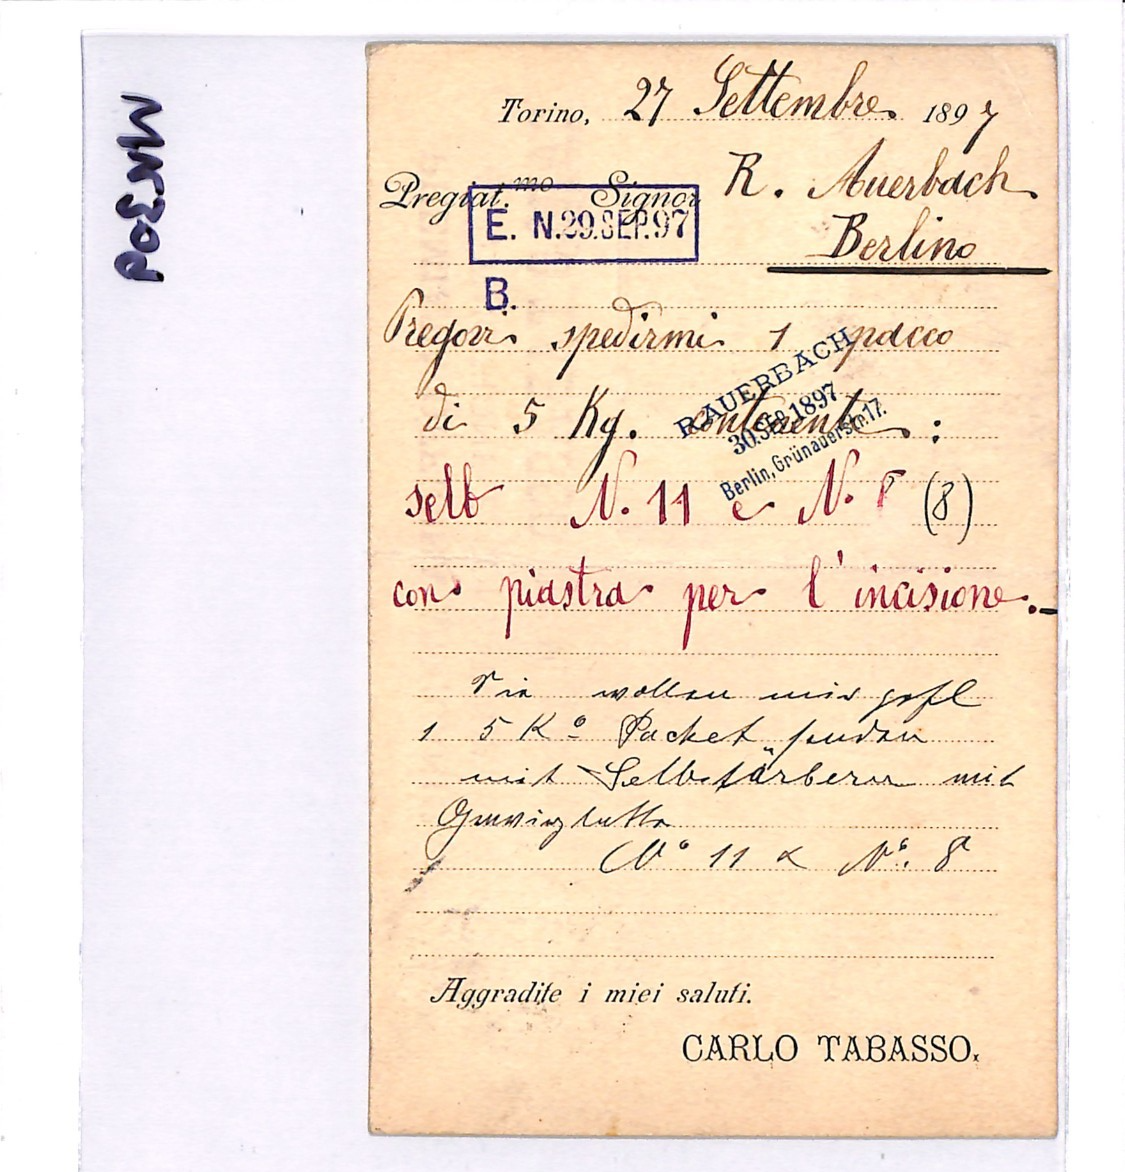 Torino, 27 Settembre 1897
Pregiat.mo Signor R. Auerbach
E. N. 29. SEP. 97
Berlino
B.
Pregovi spedirmi 1 pacco
R. AUERBACH
di 5 Kg. contenente :
30. SEP. 1897
Berlin, Grünauerstr. 17.
selb N. 11 e N. 8 (8)
con piastra per l'incisione.-
Sie wollen mir gefl
1 5 Ko Packet senden
mit "Selbstfärberer mit
No 11 & No. 8
Aggradite i miei saluti.
CARLO TABASSO.